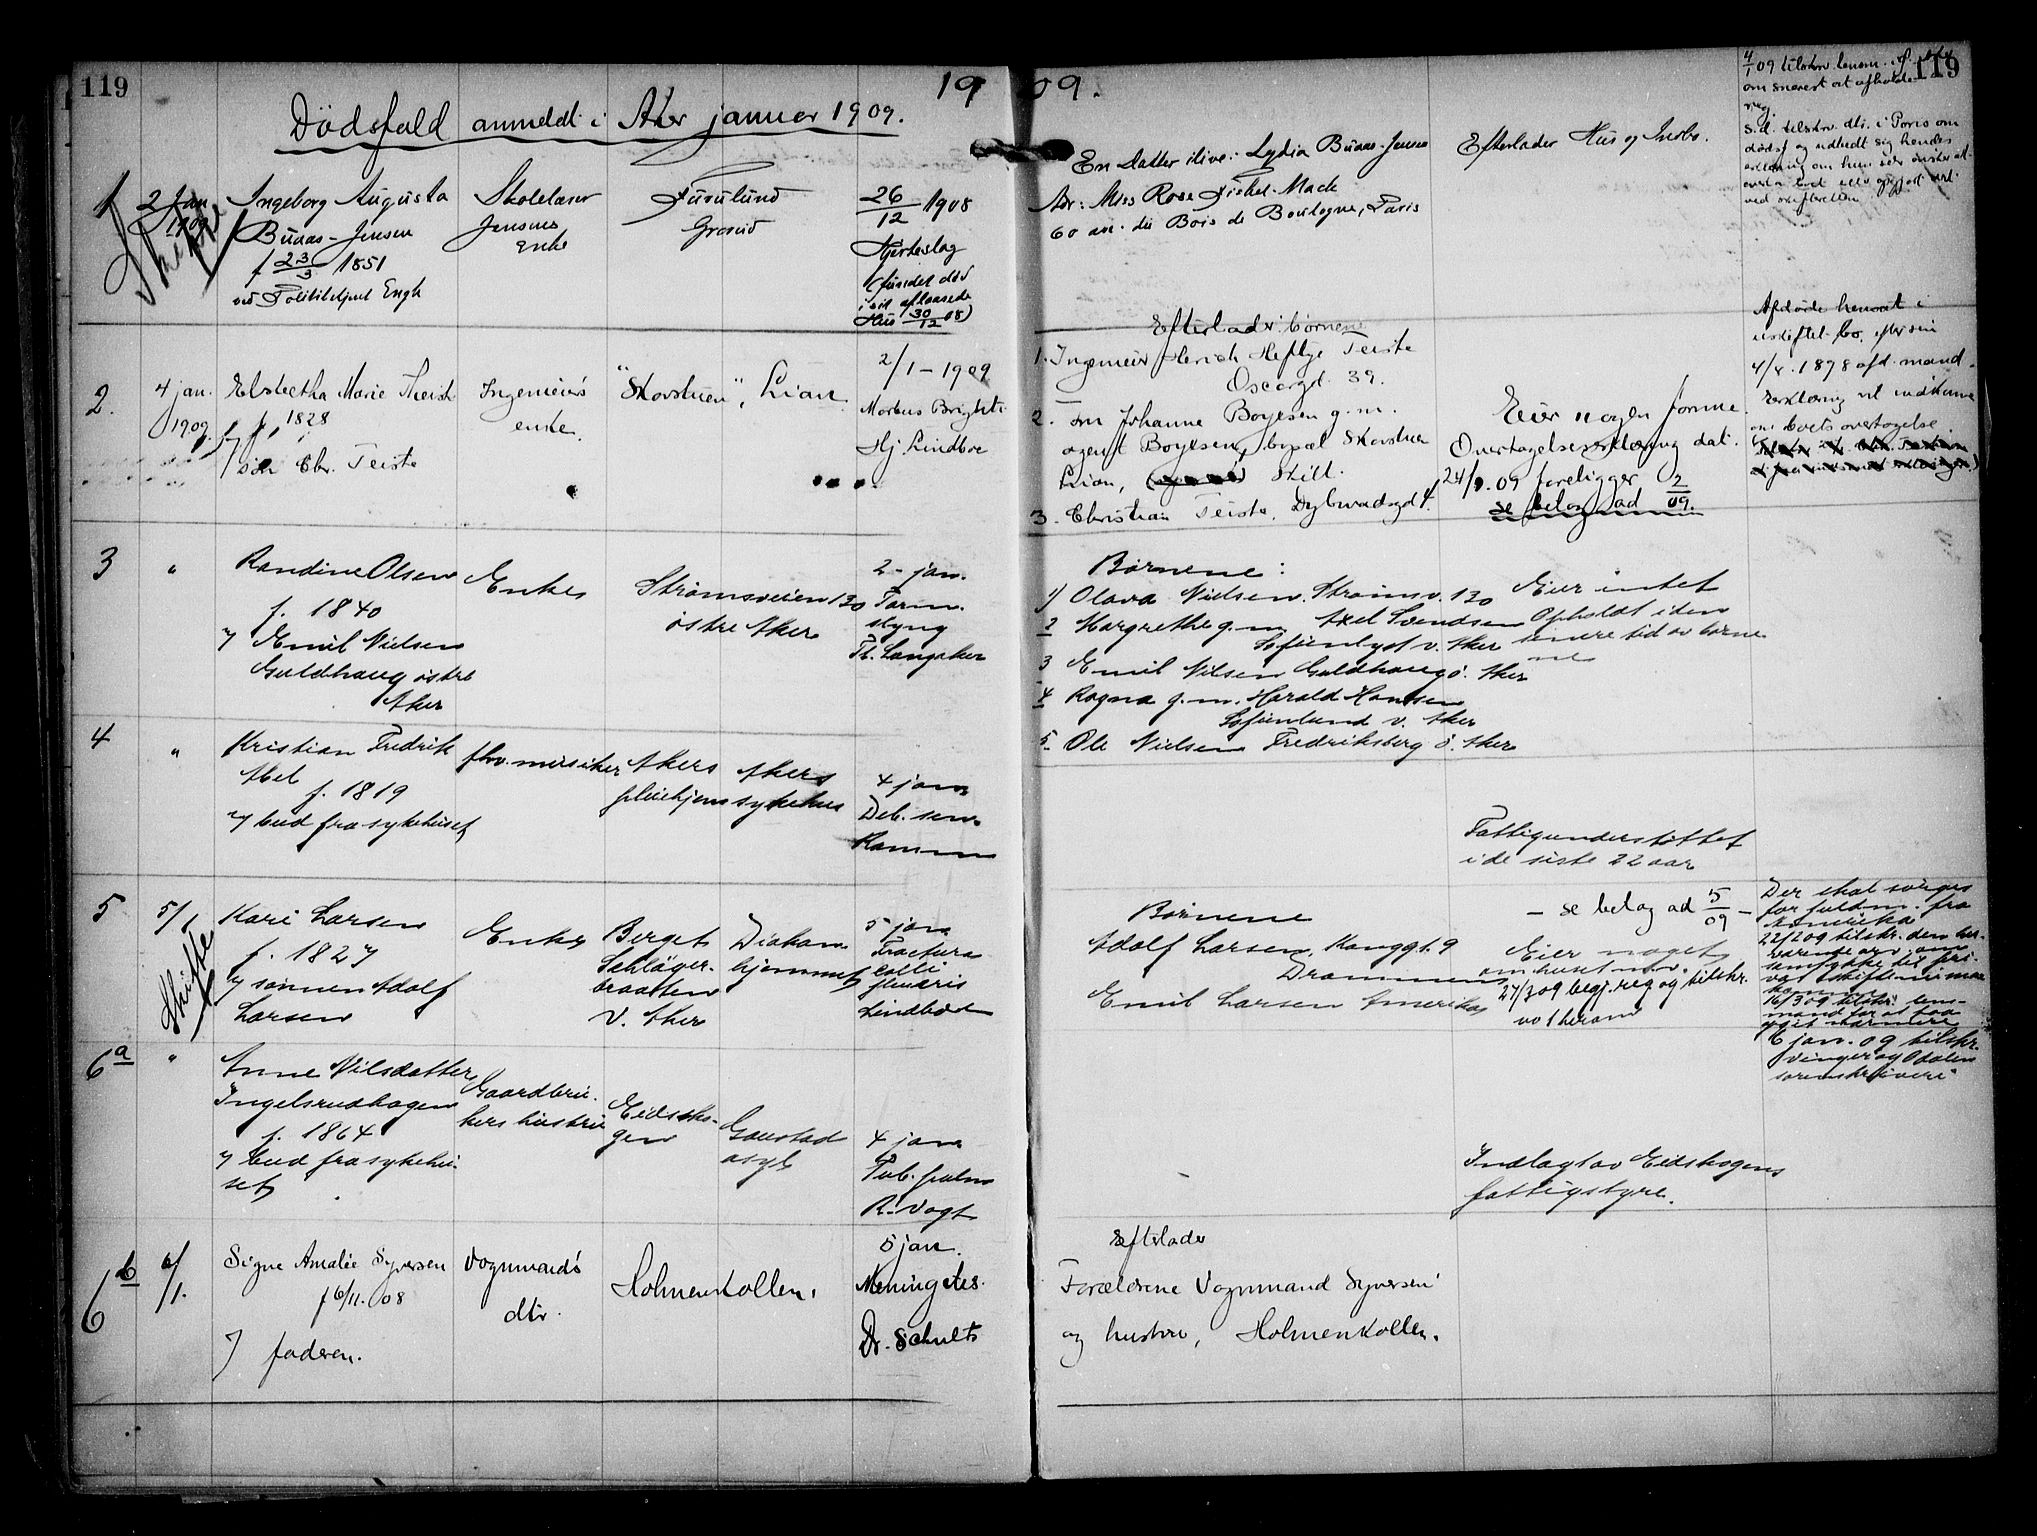 119
1909.
119
Dödsfald anmeldt i Aker januar 1909.
1
2 Jan
1909
Skifte
Ingeborg Augusta
Buaas-Jensen
f 23/3 1851
ved Politibetjent Engh
Skolelærer
Jensens
Enke
Furulund
Grorud
26/12 1908
Hjerteslag
(fundet død
i sit aflaasede
Hus 30/12 08)
En datter ilive: Lydia Buaas-Jensen
Adr: Miss Rose Fishel-Mack
60 av. du Bois de Boulogne, Paris
Efterlader Hus og Indbo.
4/1 09 tilskr. lensm.
om snarest at afholde
reg.
S.d. tilskr. dtr. i Paris om
dødsf. og udbedt sig hendes
erklæring om hun selv ønsker at
overta boet eller opgjort det
ved skifteretten
2.
4 jan.
1909.
Elsbetha Marie Theiste
f. 1828
v/ søn Chr. Teiste
Ingeniørs
enke.
"Skovstuen", Lian
2/1-1909
Morbus Brighti
Hj. Lindboe
Efterlader børnene
1. Ingeniør Henrich Heftye Teiste
Oscarsgd. 39.
2. fru Johanne Boyesen g.m.
agent Boyesen, bopæl Skovstuen
Lian, skilt.
3. Christian Teiste, Dybwadsgd 4.
Eier nogen formue.
Overtagelseserklæring dat.
24/9.09 foreligger
se belog ad 2/09.
Afdøde hensat i
uskiftet bo efter sin
4/8.1878 afd. mand.
Erklæring vil indkomme
om boets overtagelse.
3
"
Randine Olsen
f. 1840
v/ Emil Nielsen
Guldhaug østre
Aker
Enke
Strømsveien 130
østre Aker
2- jan.
Tarm-
slyng
Th. Langaker
Børnene:
1) Olava Nielsen. Strømsv. 130
2 Margrethe g.m. Axel Svendsen
Sofienlyst v. Aker
3 Emil Nilsen Guldhaug ø. Aker
4 Ragna g.m. Harald Hansen
Sofienlund v. Aker
5 Ole Nielsen Fredriksberg ø. Aker
Eier intet
Opholdt i den
senere tid av børne
ne
4
"
Kristian Fredrik
Abel
f. 1819
v/ bud fra sykehuset
fhv. musiker
Akers
pleiehjem
Akers
sykehus
4 jan
Deb. sen.
Ramm
Fattigunderstøttet
i de siste 22 aar
5
5/1
Skifte
Kari Larsen
f. 1827
v/ sønnen Adolf
Larsen
Enke
Berget
Schläger-
braaten
V. Aker
Diakon
hjemmet
5 jan
Fractura
colli
femoris
Lindboe
Børnene
Adolf Larsen, Konggt. 9
Drammen
Emil Larsen Amerika
- se belog ad 5/09 -
Eier noget
om huset m.v.
27/3 09 begj. reg og tilskr.
Der skal sørges
for fuldm. fra
Amerika
22/2 09 tilskr. den her-
værende arv. om
samtykke til pri-
vat skifte
16/3 09 tilskr. lens-
mand for at faa
6a
"
Anne Nilsdatter
Ingelsrudhagen
f. 1864
v/ bud fra sykehu-
set
Gaardbru-
kers hustru
Eidsko-
gen
Gaustad
asyl
4 jan
Tub. pulm
R. Vogt
Indlagt av Eidskogens
fattigstyre.
6 jan. 09 tilskr.
Vinger og Odalens
sorenskriveri
6b
6/1.
Signe Amalie Syversen
f 6/11. 08
v/ faderen.
Vognmands
dtr.
Holmenkollen.
5 jan.
Meningites.
Dr. Schults
Efterlader
Forældrene Vognmand Syversen
og hustru, Holmenkollen.